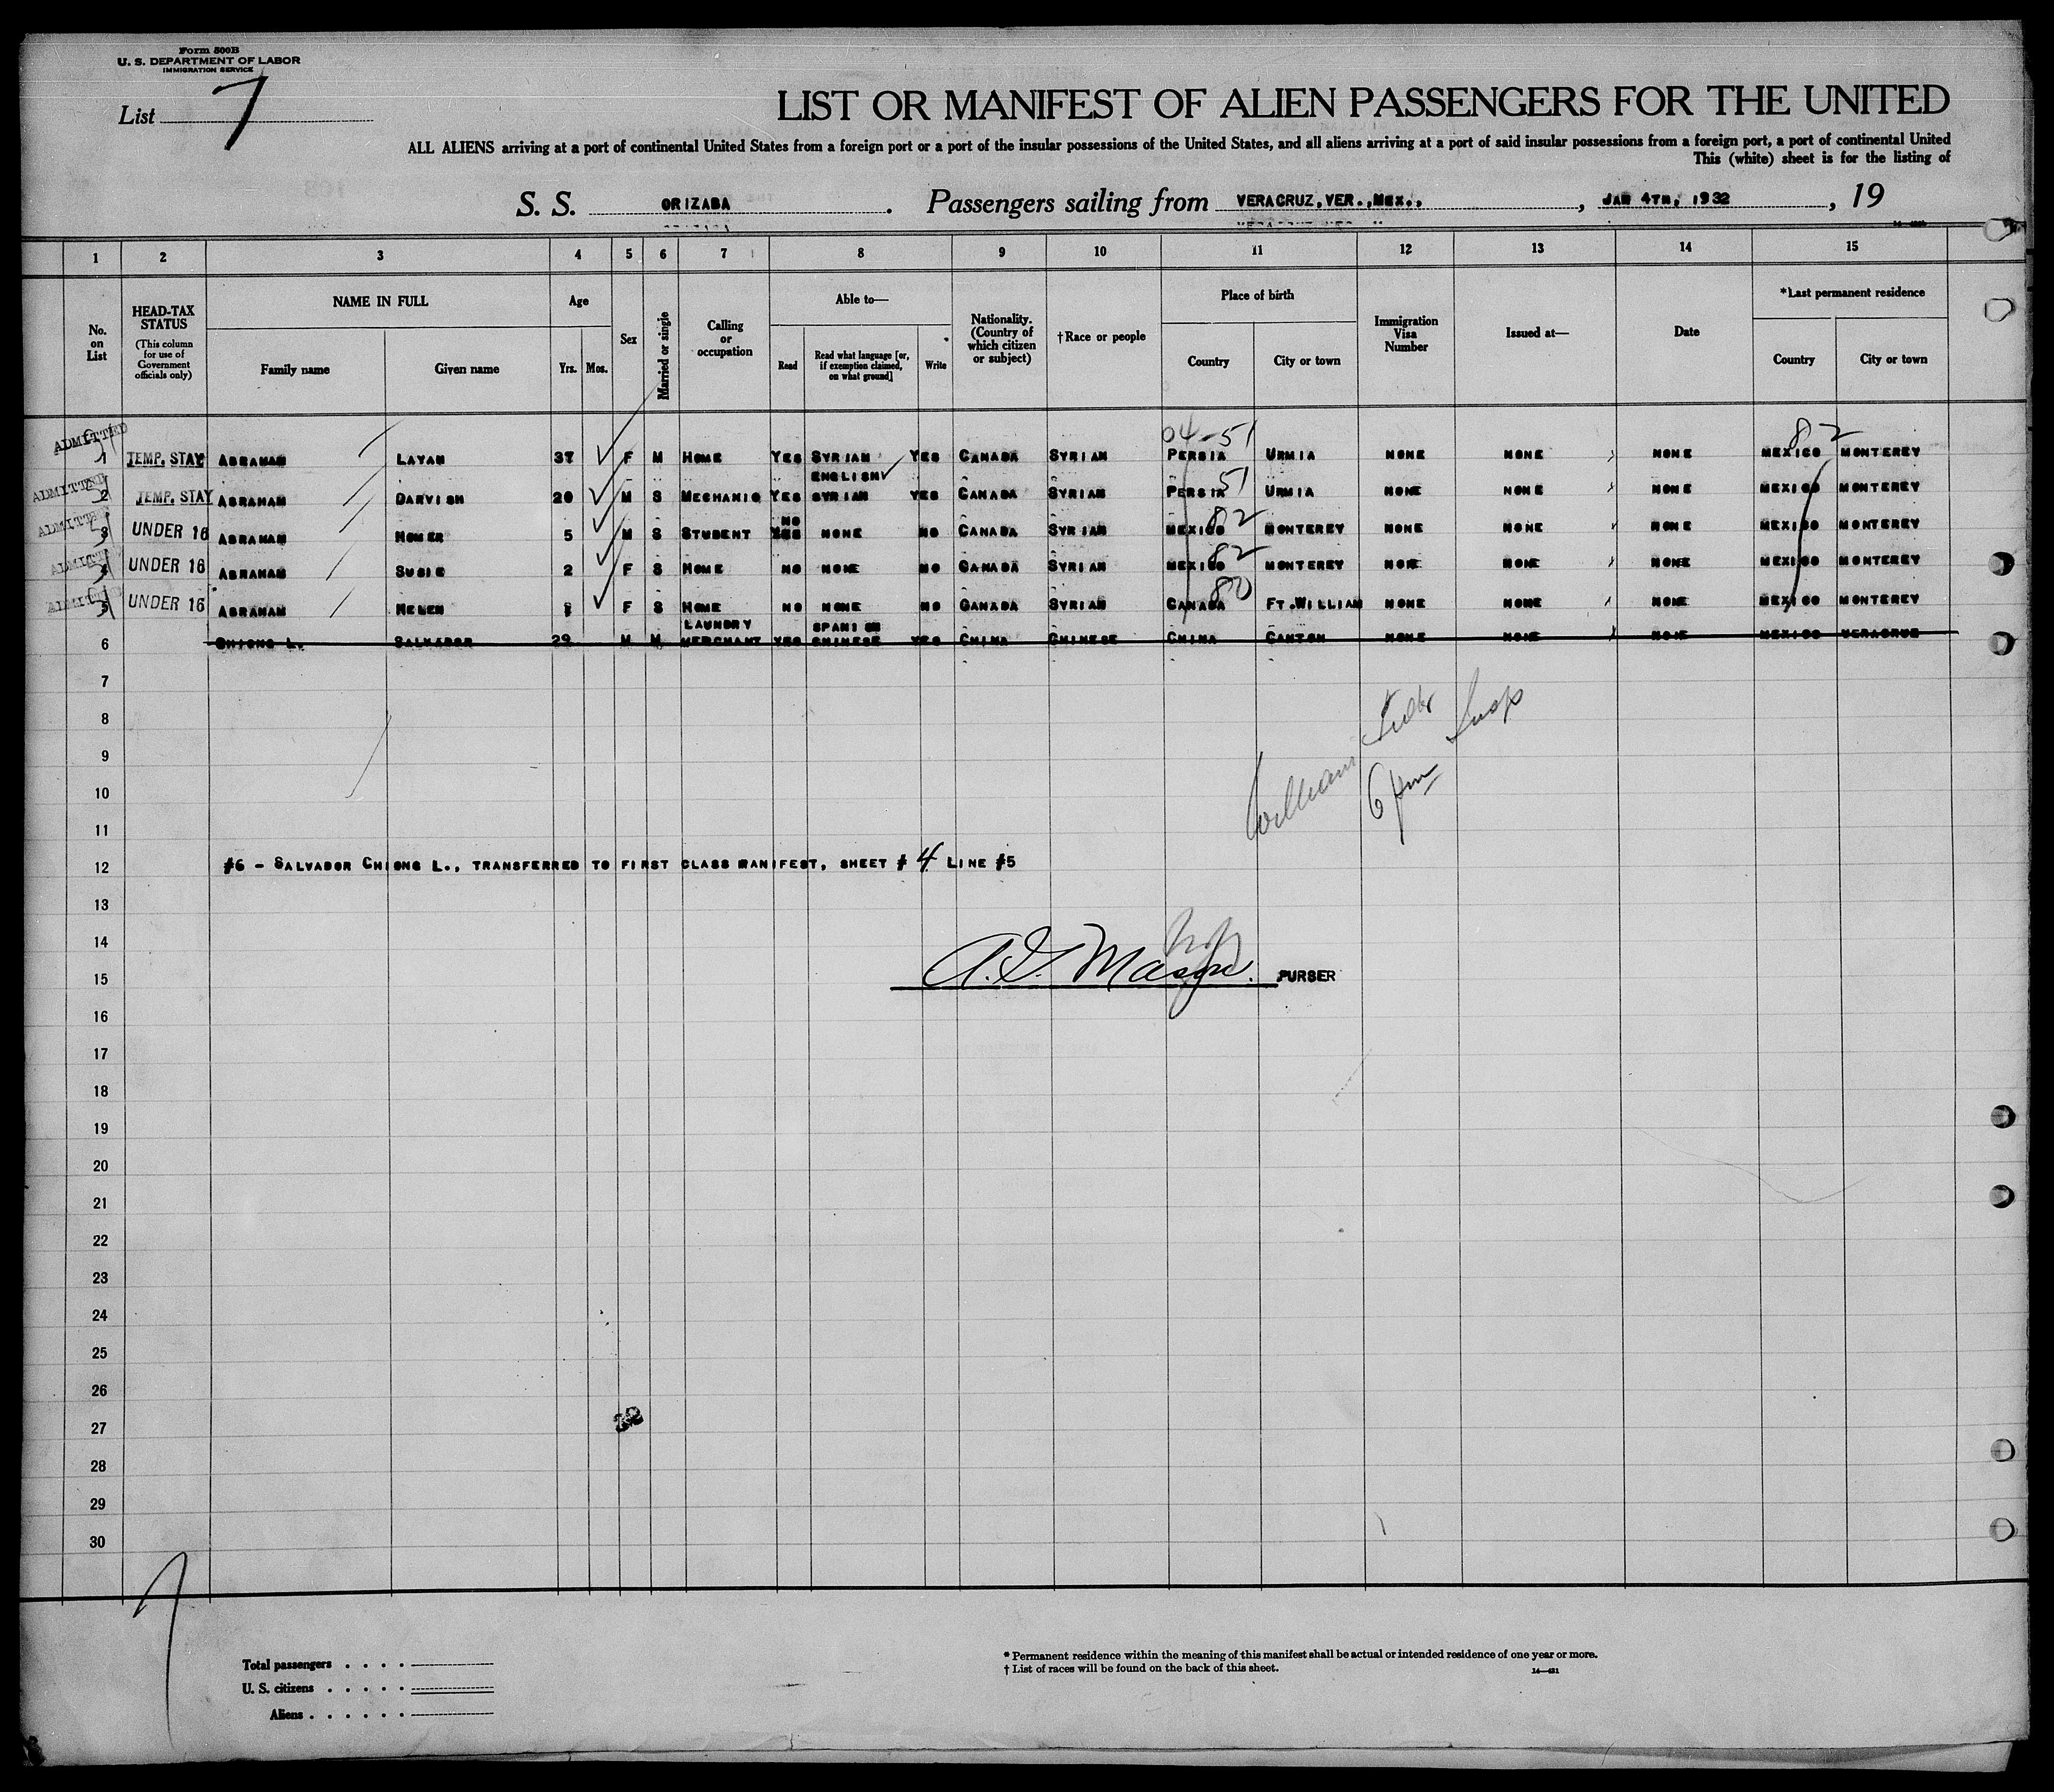 Form 500B
U. S. DEPARTMENT OF LABOR
IMMIGRATION SERVICE
List 7
LIST OR MANIFEST OF ALIEN PASSENGERS FOR THE UNITED
ALL ALIENS arriving at a port of continental United States from a foreign port or a port of the insular possessions of the United States, and all aliens arriving at a port of said insular possessions from a foreign port, a port of continental United
This (white) sheet is for the listing of
S. S. ORIZABA . Passengers sailing from VERACRUZ, VER., MEX., , JAN 4TH, 1932 , 19
1 2 3 4 5 6 7 8 9 10 11 12 13 14 15
No. on List
HEAD-TAX STATUS (This column for use of Government officials only)
NAME IN FULL
Family name Given name
Age
Yrs. Mos.
Sex
Married or single
Calling or occupation
Able to—
Read Read what language [or, if exemption claimed, on what ground] Write
Nationality. (Country of which citizen or subject)
†Race or people
Place of birth
Country City or town
Immigration Visa Number
Issued at—
Date
*Last permanent residence
Country City or town
04-51 82
ADMITTED
1 TEMP. STAY ABRAHAM LAYAH 37 F M HOME YES SYRIAN YES CANADA SYRIAN PERSIA URMIA NONE NONE NONE MEXICO MONTEREY
ENGLISH 51
ADMITTED 2 TEMP. STAY ABRAHAM DARVISH 20 M S MECHANIC YES SYRIAN YES CANADA SYRIAN PERSIA URMIA NONE NONE NONE MEXICO MONTEREY
NO 82
ADMITTED 3 UNDER 16 ABRAHAM HOMER 5 M S STUDENT YES NONE NO CANADA SYRIAN MEXICO MONTEREY NONE NONE NONE MEXICO MONTEREY
82
ADMITTED 4 UNDER 16 ABRAHAM SUSIE 2 F S HOME NO NONE NO CANADA SYRIAN MEXICO MONTEREY NONE NONE NONE MEXICO MONTEREY
80
ADMITTED 5 UNDER 16 ABRAHAM HELEN F S HOME NO NONE NO CANADA SYRIAN CANADA FT.WILLIAM NONE NONE NONE MEXICO MONTEREY
LAUNDRY SPANISH
6 CHIONG L. SALVADOR 29 M M MERCHANT YES CHINESE YES CHINA CHINESE CHINA CANTON NONE NONE NONE MEXICO VERACRUZ
7
8
9
William Insp
10
6 pm
11
12 #6 - SALVADOR CHIONG L., TRANSFERRED TO FIRST CLASS MANIFEST, SHEET # 4 LINE #5
13
14
15 A. G. Mason. PURSER
16
17
18
19
20
21
22
23
24
25
26
27
28
29
30
7
Total passengers . . . .
U. S. citizens . . . . .
Aliens . . . . . .
* Permanent residence within the meaning of this manifest shall be actual or intended residence of one year or more.
† List of races will be found on the back of this sheet. 14—481